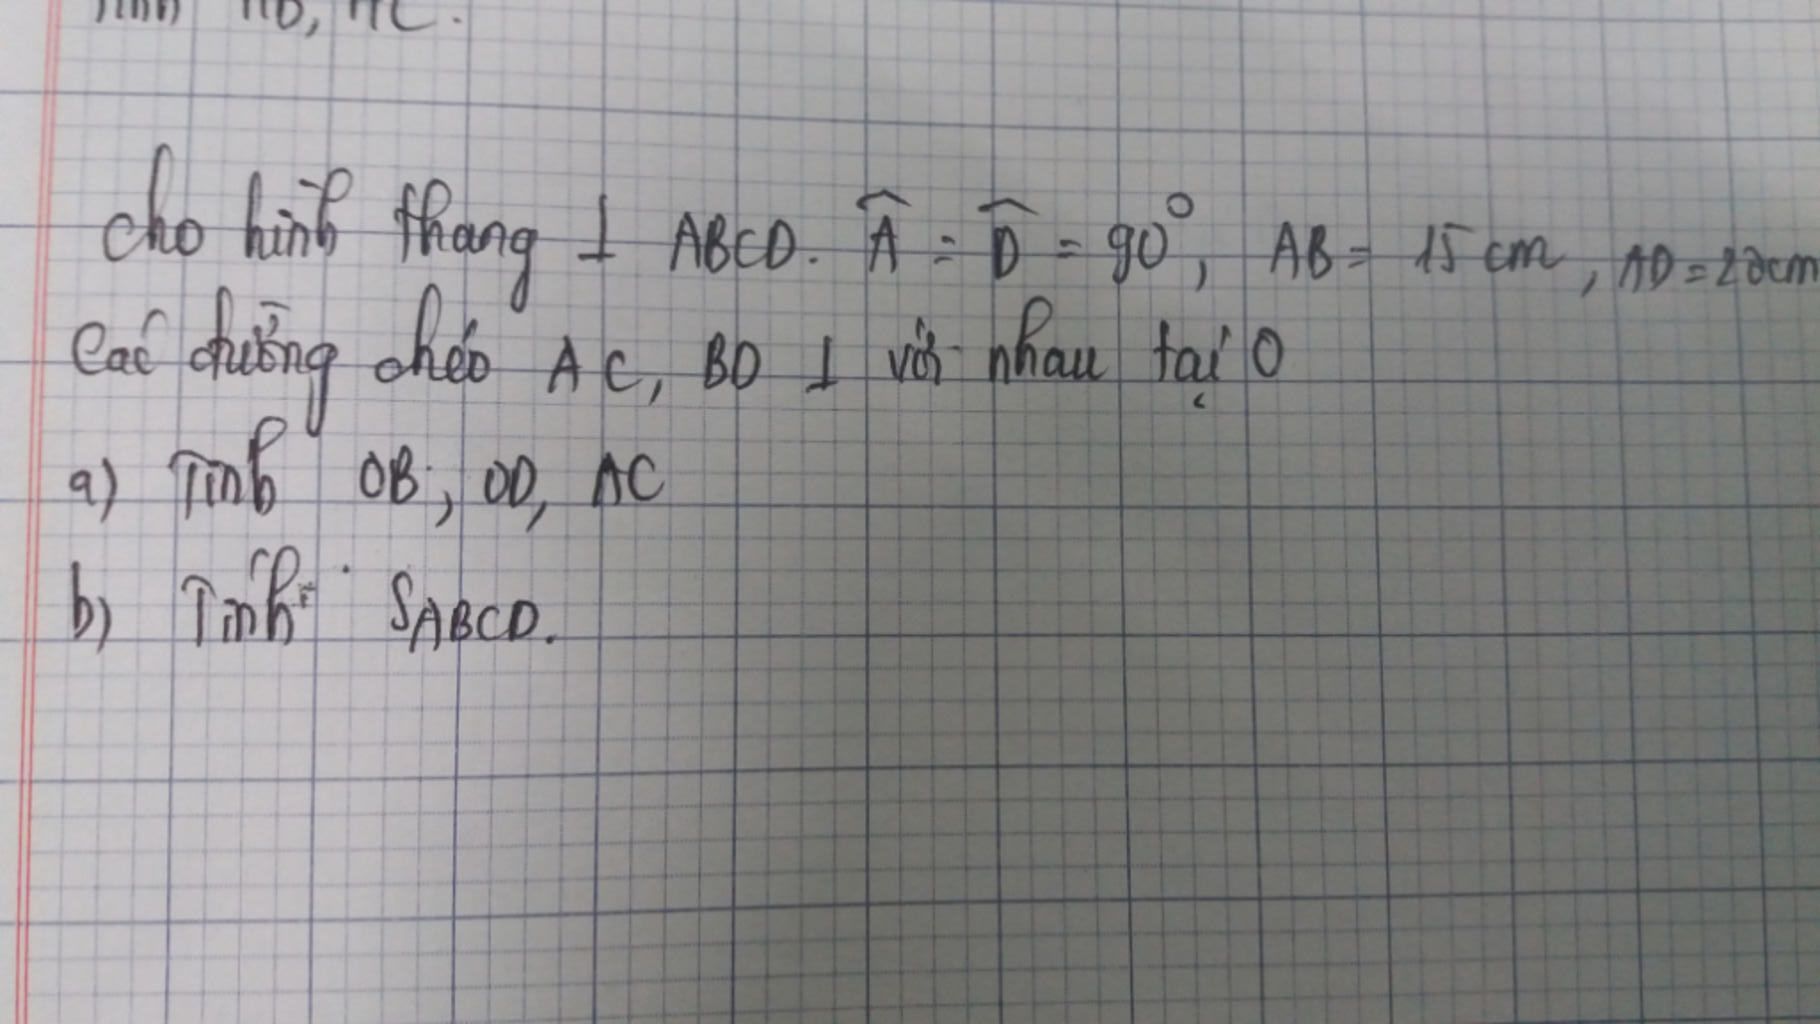 Tính AB, AC.
Cho hình thang ⊥ ABCD. Â = D̂ = 90°, AB = 15 cm, AD = 20cm
Các đường chéo AC, BD ⊥ với nhau tại O
a) Tính OB; OD, AC
b) Tính SABCD.